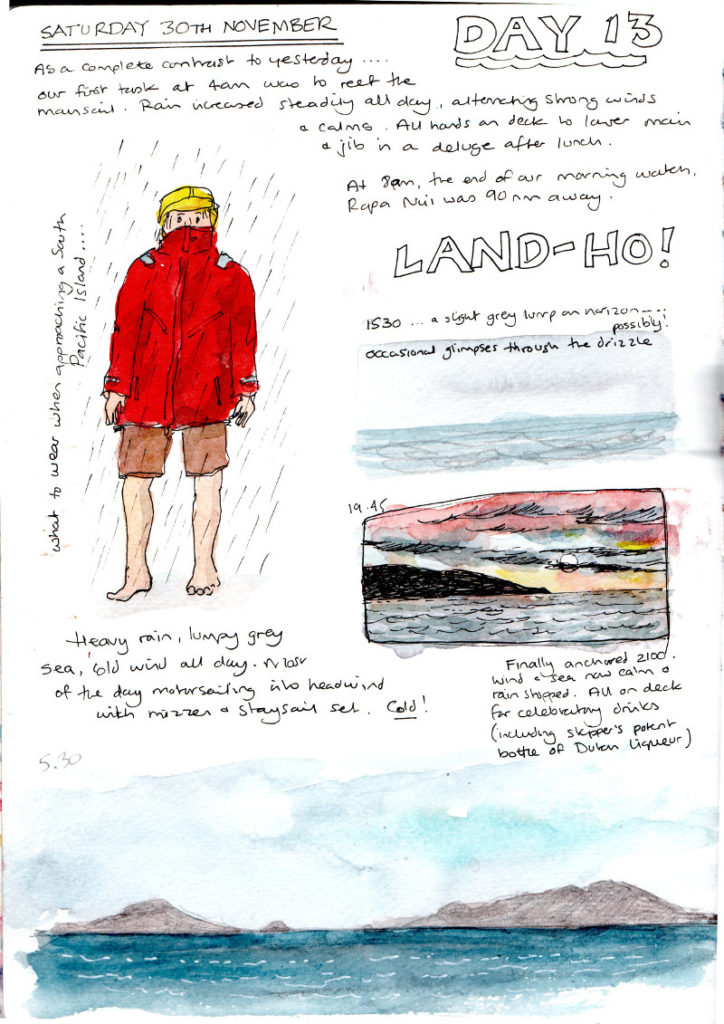 SATURDAY 30TH NOVEMBER
DAY 13
As a complete contrast to yesterday ....
our first task at 4am was to reef the
mainsail. Rain increased steadily all day, alternating strong winds
& calms. All hands on deck to lower main
& jib in a deluge after lunch.
At 8am, the end of our morning watch,
Rapa Nui was 90nm away.
LAND-HO!
what to wear when approaching a South
Pacific Island....
1530 ... a slight grey lump on horizon ....
possibly!
occasional glimpses through the drizzle
19.45
Heavy rain, lumpy grey
sea, cold wind all day. Most
of the day motorsailing into headwind
with mizzen & staysail set. Cold!
Finally anchored 2100.
Wind & sea now calm &
rain stopped. All on deck
for celebratory drinks
(including skipper's potent
bottle of Dutch Liqueur)
5.30